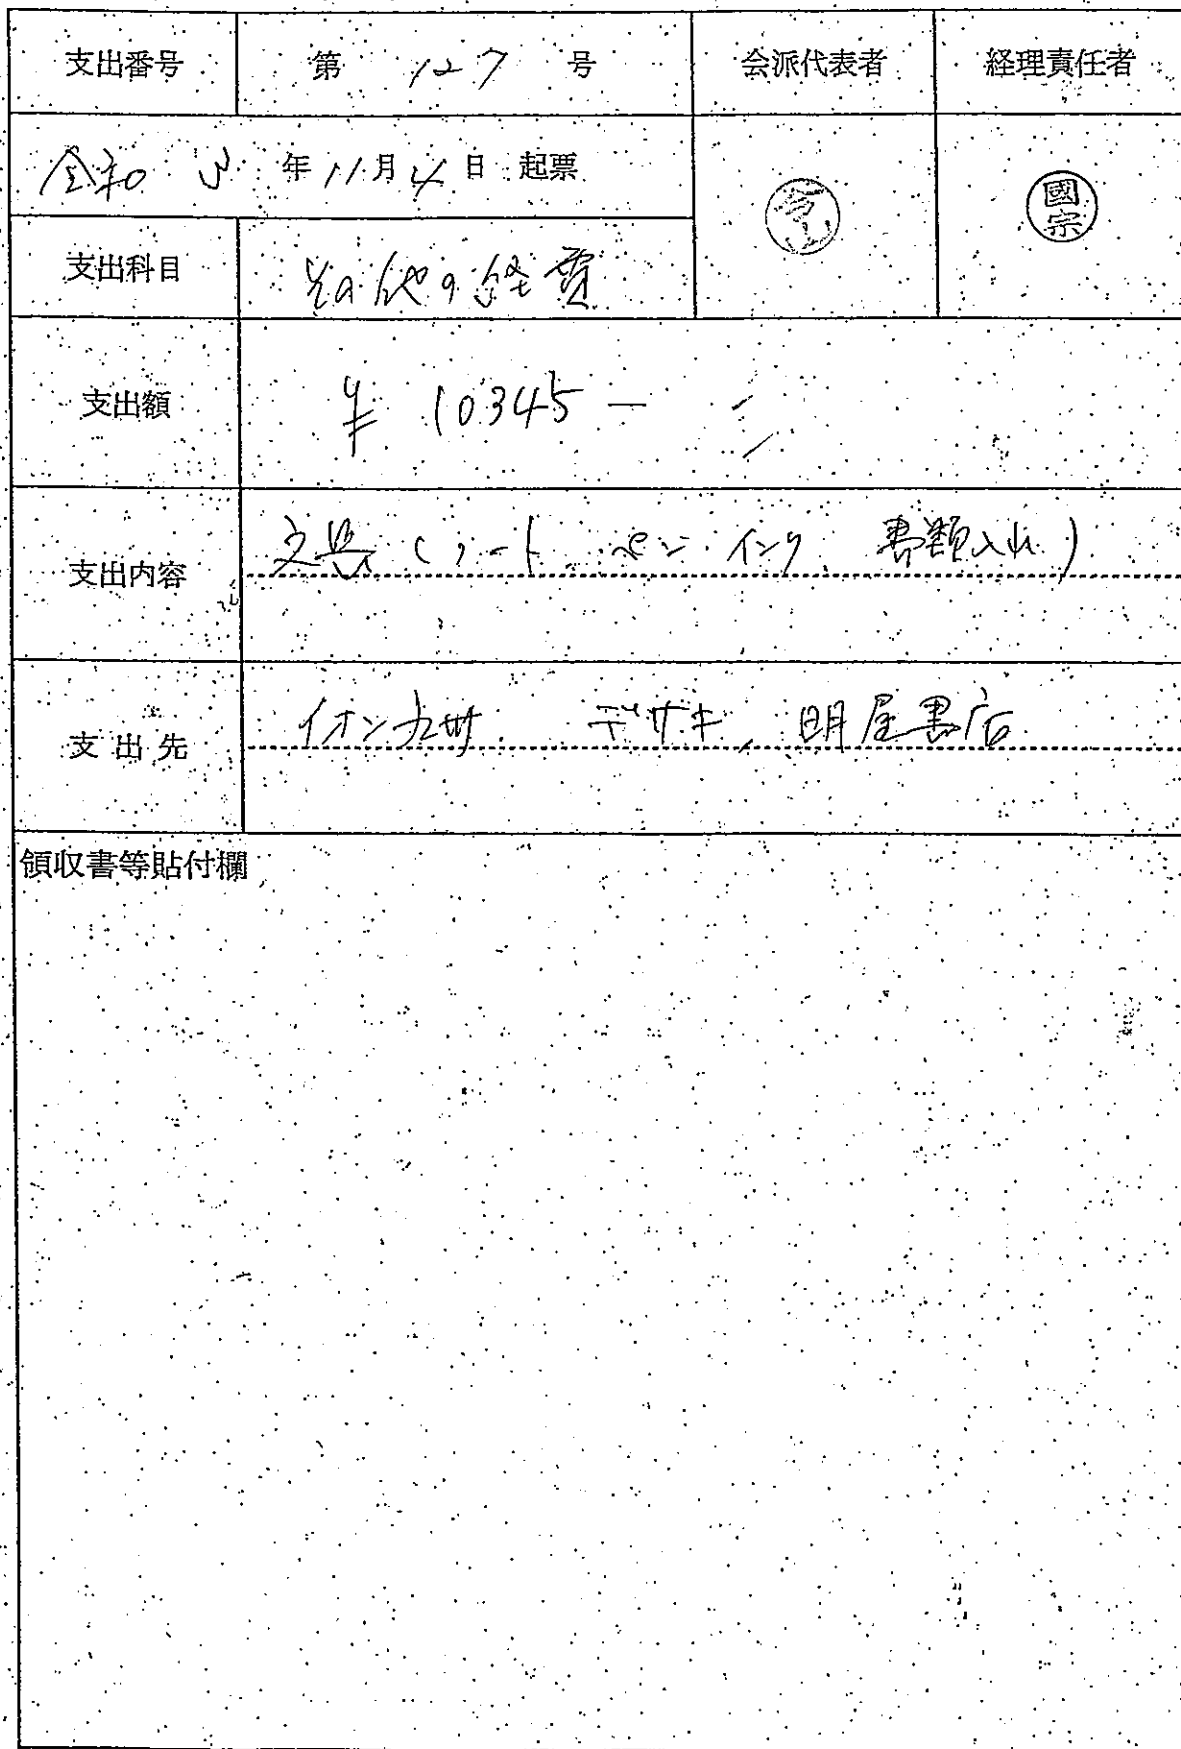 支出番号 第 127 号 会派代表者 経理責任者
令和 3 年 11月 4 日 起票
國宗
支出科目 その他の経費
支出額 ¥ 10345 －
支出内容 文具 (ノート ペン インク 書類入れ)
支出先 イオン九州 デサキ, 明屋書店
領収書等貼付欄